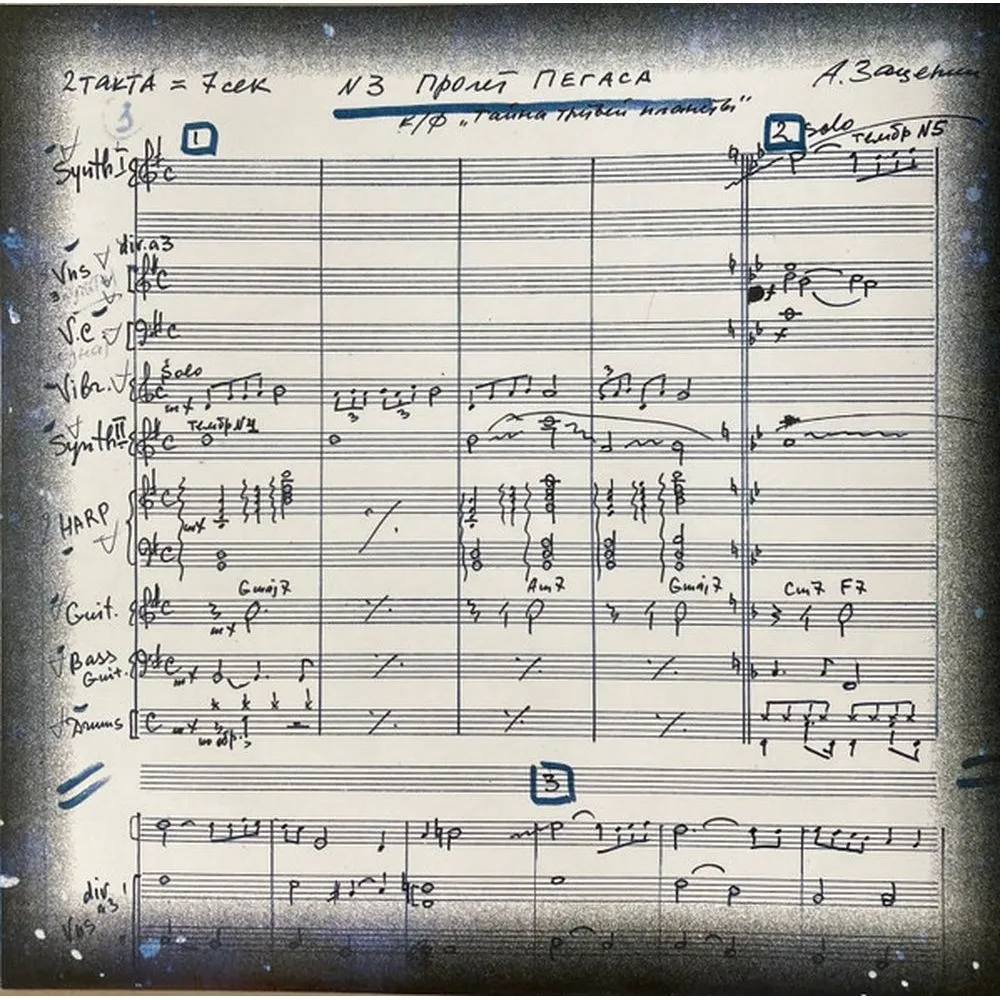 2 такта = 7 сек № 3 Пролёт Пегаса А. Зацепин
к/ф „Тайна третьей планеты"
3
1 2 Solo тембр №5
Synth I C
div. a3
Vns C
V.C C
Solo
Vibr. C mf 3 3 3
тембр №
Synth II C
HARP C mf
C
Gmaj7 Am7 Gmaj7 Cm7 F7
Guit. C mf
Bass Guit. C mf
Drums C mf
3
div. a3
Vns